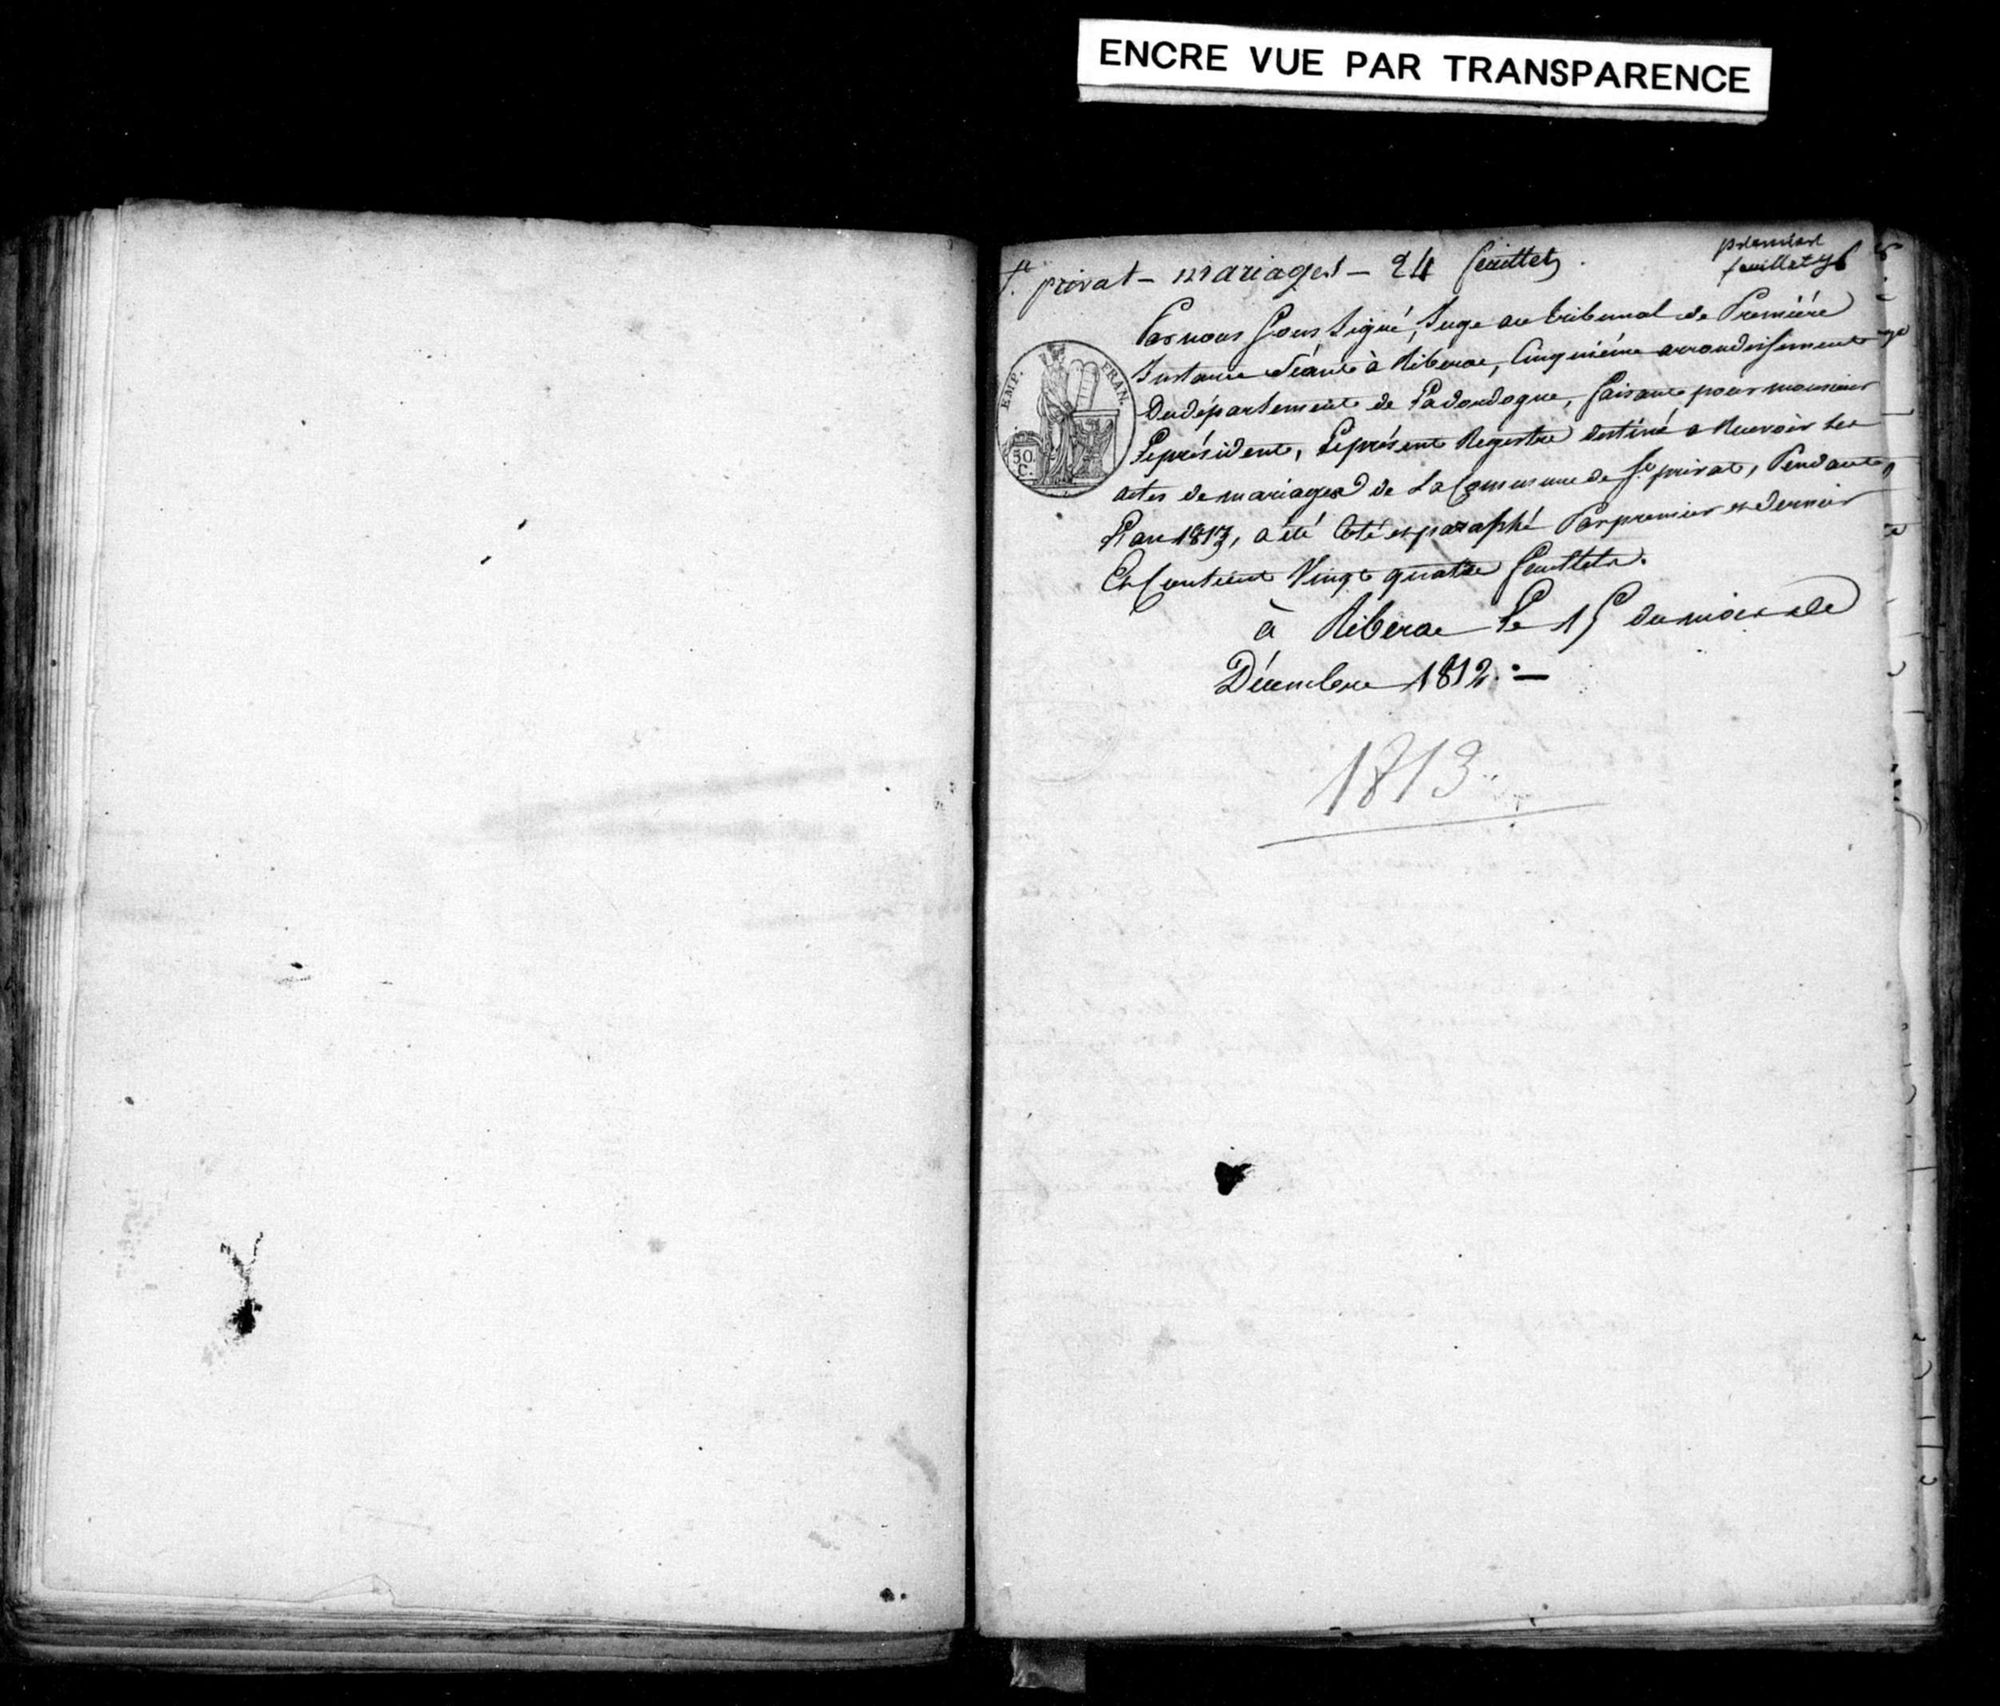 ENCRE VUE PAR TRANSPARENCE
St privat – mariages – 24 feuillets
premiere
feuillet
Par nous Soussigné, Juge au tribunal de Première
Instance Séante à Riberac, Cinquième arrondissement
Du département de La dordogne, faisant pour monsieur
Le président, Le présent Registre destiné a Recevoir les
actes de mariages de La Commune de St privat, Pendant
L'an 1813, a été Coté et paraphé Par premier et dernier
Et Contient Vingt quatre feuillets.
à Riberac Le 15 du mois de
Décembre 1812. –
EMP. FRAN.
50.
C.
1813